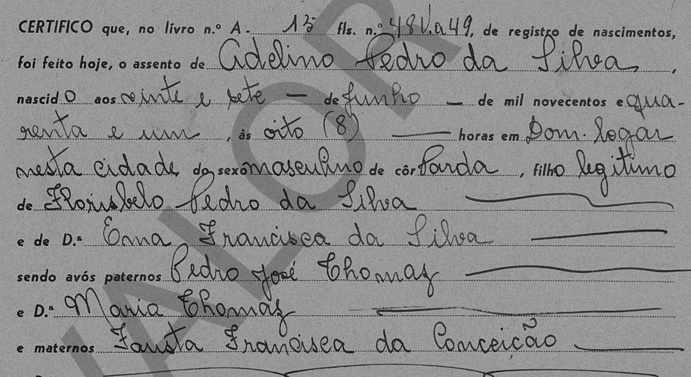 CERTIFICO que, no livro n.º A - 13 fls. n.º 48V. a 49, de registro de nascimentos,
foi feito hoje, o assento de Adelino Pedro da Silva,
nascido aos vinte e sete — de Junho — de mil novecentos e qua-
renta e um, às oito (8) — horas em Dom. logar
nesta cidade, do sexo masculino de côr Parda, filho legitimo
de Florisbelo Pedro da Silva
e de D.ª Francisca da Silva
sendo avós paternos Pedro José Thomaz
e D.ª Maria Thomaz
e maternos Fausta Francisca da Conceição
VALOR